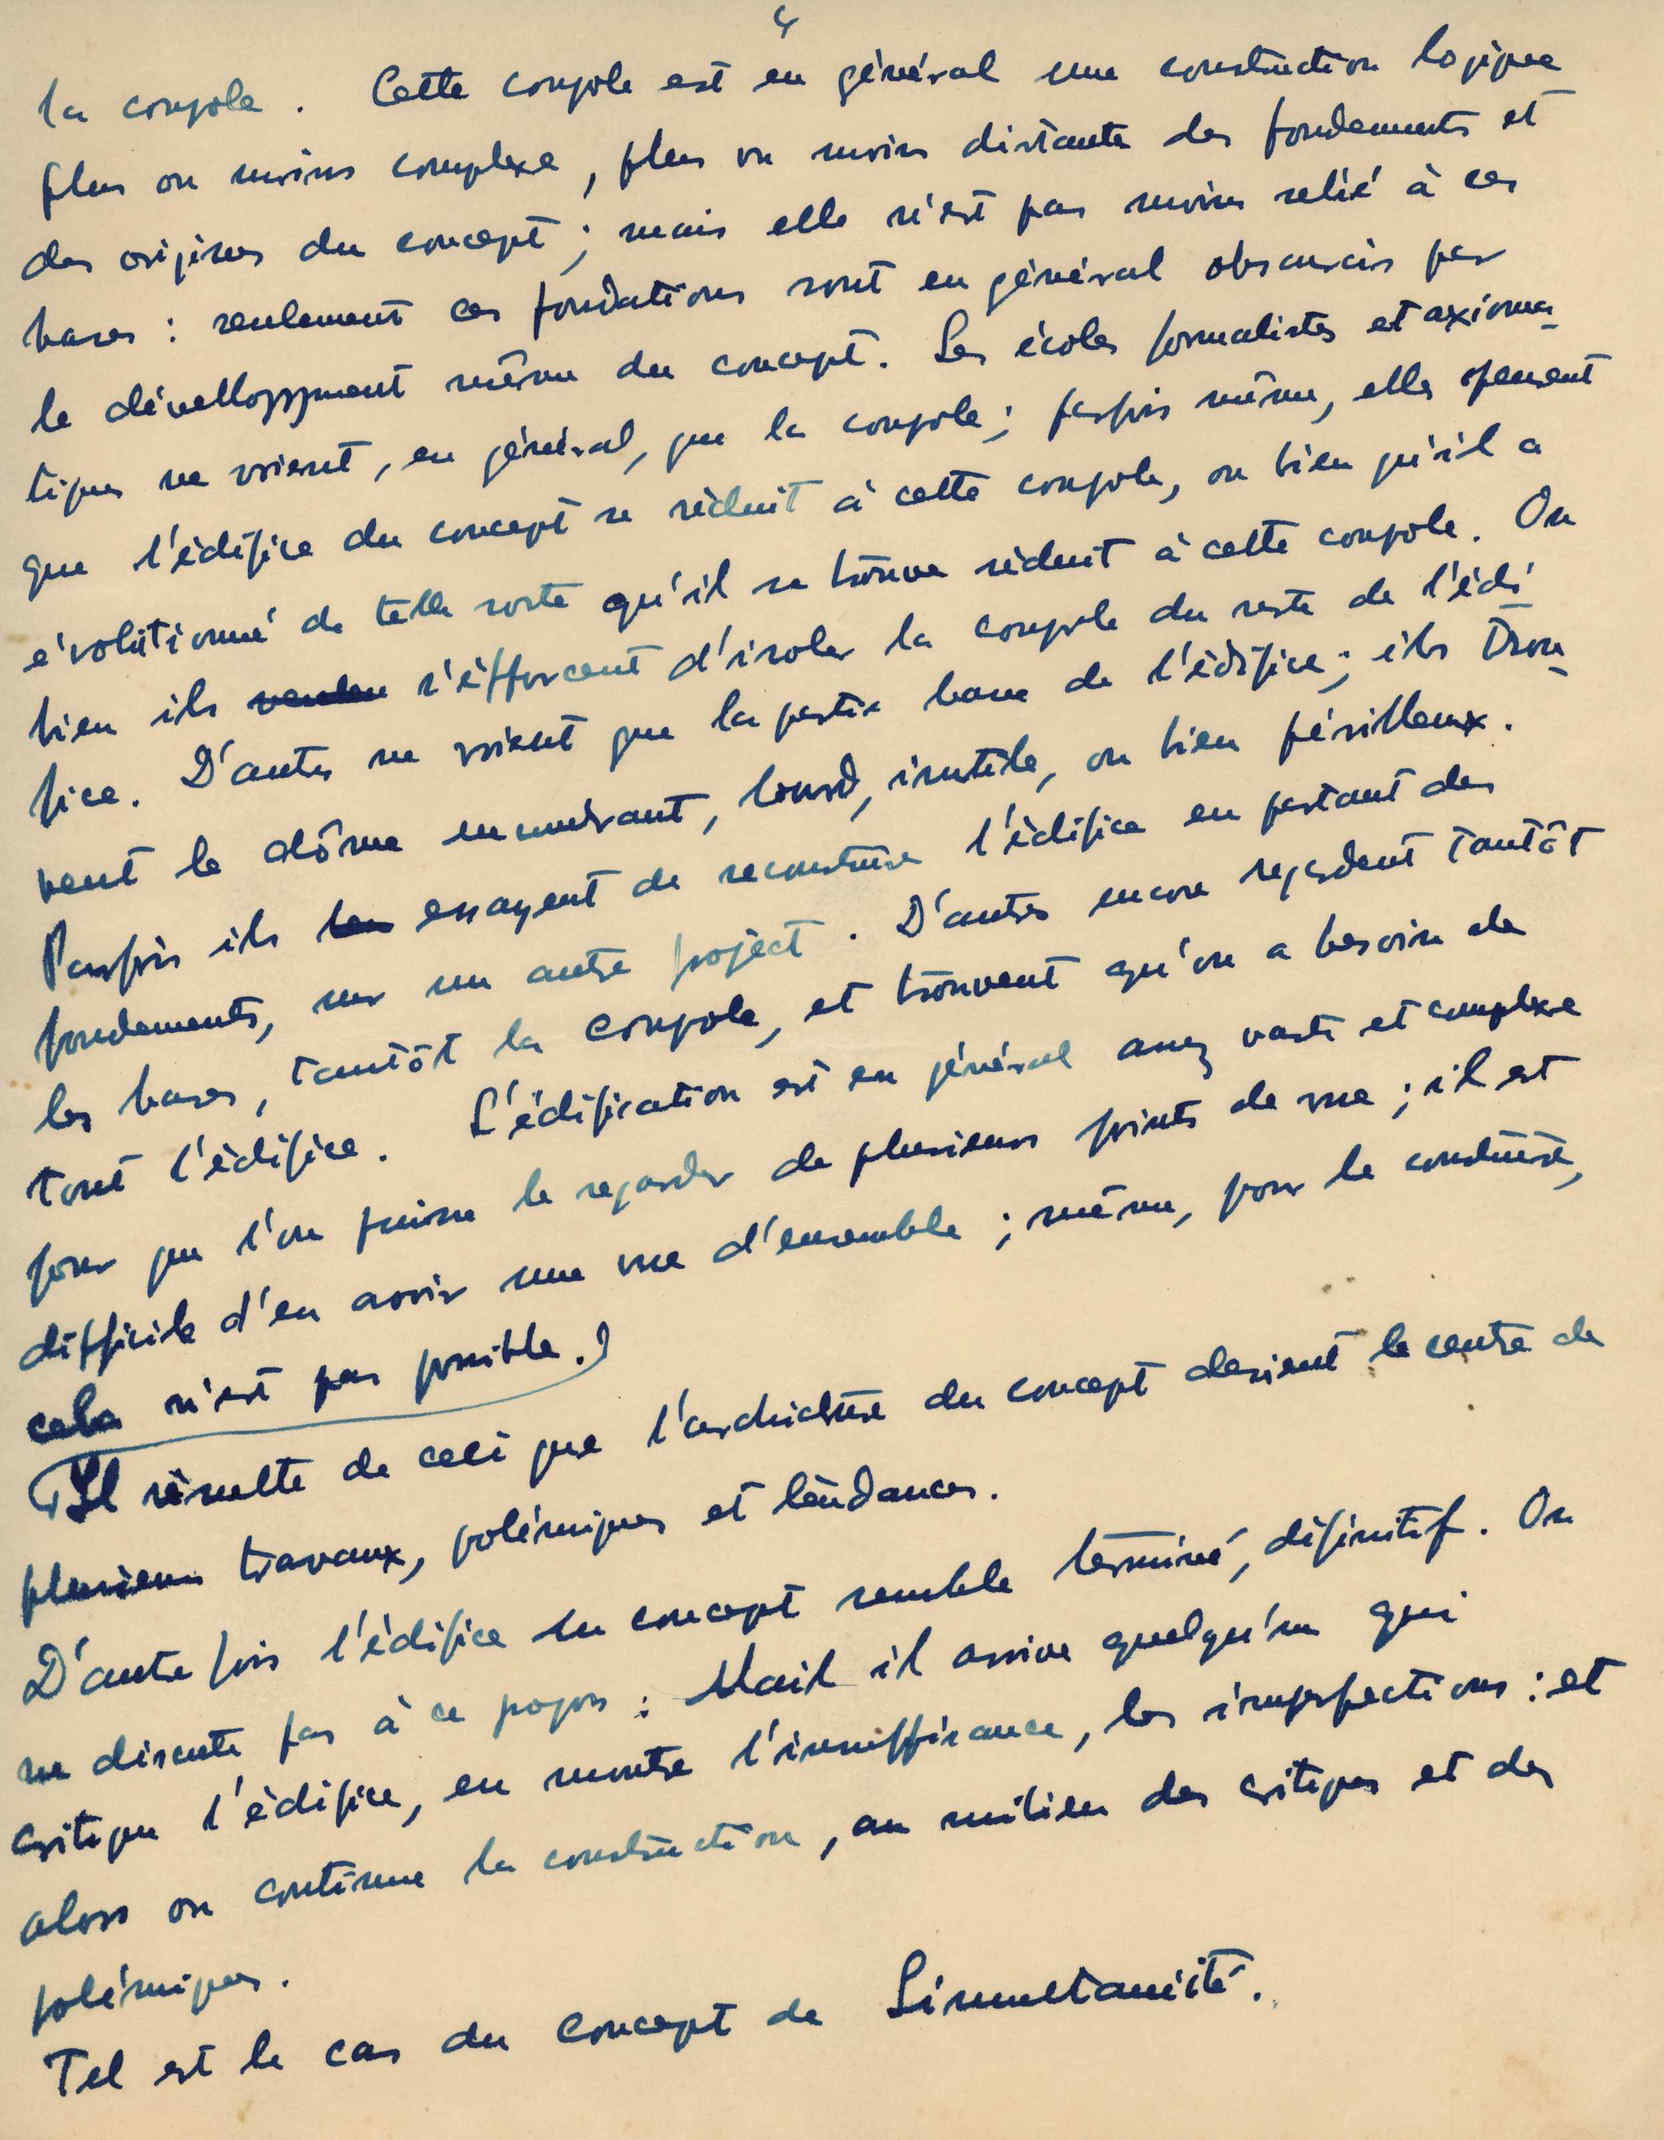 4
la coupole. Cette coupole est en général une construction logique
plus ou moins complexe, plus ou moins distante des fondements et
des origines du concept; mais elle n'est pas moins relié à ces
bases: seulement ces fondations sont en général obscurcis par
le dévelloppment même du concept. Les écoles formalistes et axioma-
tiques ne voient, en général, que la coupole; parfois même, elles pensent
que l'édifice du concept se réduit à cette coupole, ou bien qu'il a
évolutionné de telle sorte qu'il se trouve réduit à cette coupole. Ou
bien ils s'éfforcent d'isoler la coupole du reste de l'édi-
fice. D'autres ne voient que la partie basse de l'édifice; ils trou-
vent le dôme encombrant, lourd, inutile, ou bien périlleux.
Parfois ils essayent de reconstruire l'édifice en partant des
fondements, sur un autre project. D'autres encore regardent tantôt
les bases, tantôt la coupole, et trouvent qu'on a besoin de
tout l'édifice. L'édification est en général assez vaste et complexe
pour que l'on puisse le regarder de plusieurs points de vue; il est
difficile d'en avoir une vue d'ensemble; même, pour le conduire,
cela n'est pas possible.)
(Il résulte de ceci que l'archicture du concept devient le centre de
plusieurs travaux, polémiques et téndances.
D'autre fois l'édifice du concept semble terminé, définitif. On
ne discute pas à ce propos: Mais il arrive quelqu'un qui
critique l'édifice, en montre l'insuffisance, les imperfections: et
alors on continue la construction, au milieu des critiques et des
polémiques.
Tel est le cas du concept de Simultanéité.